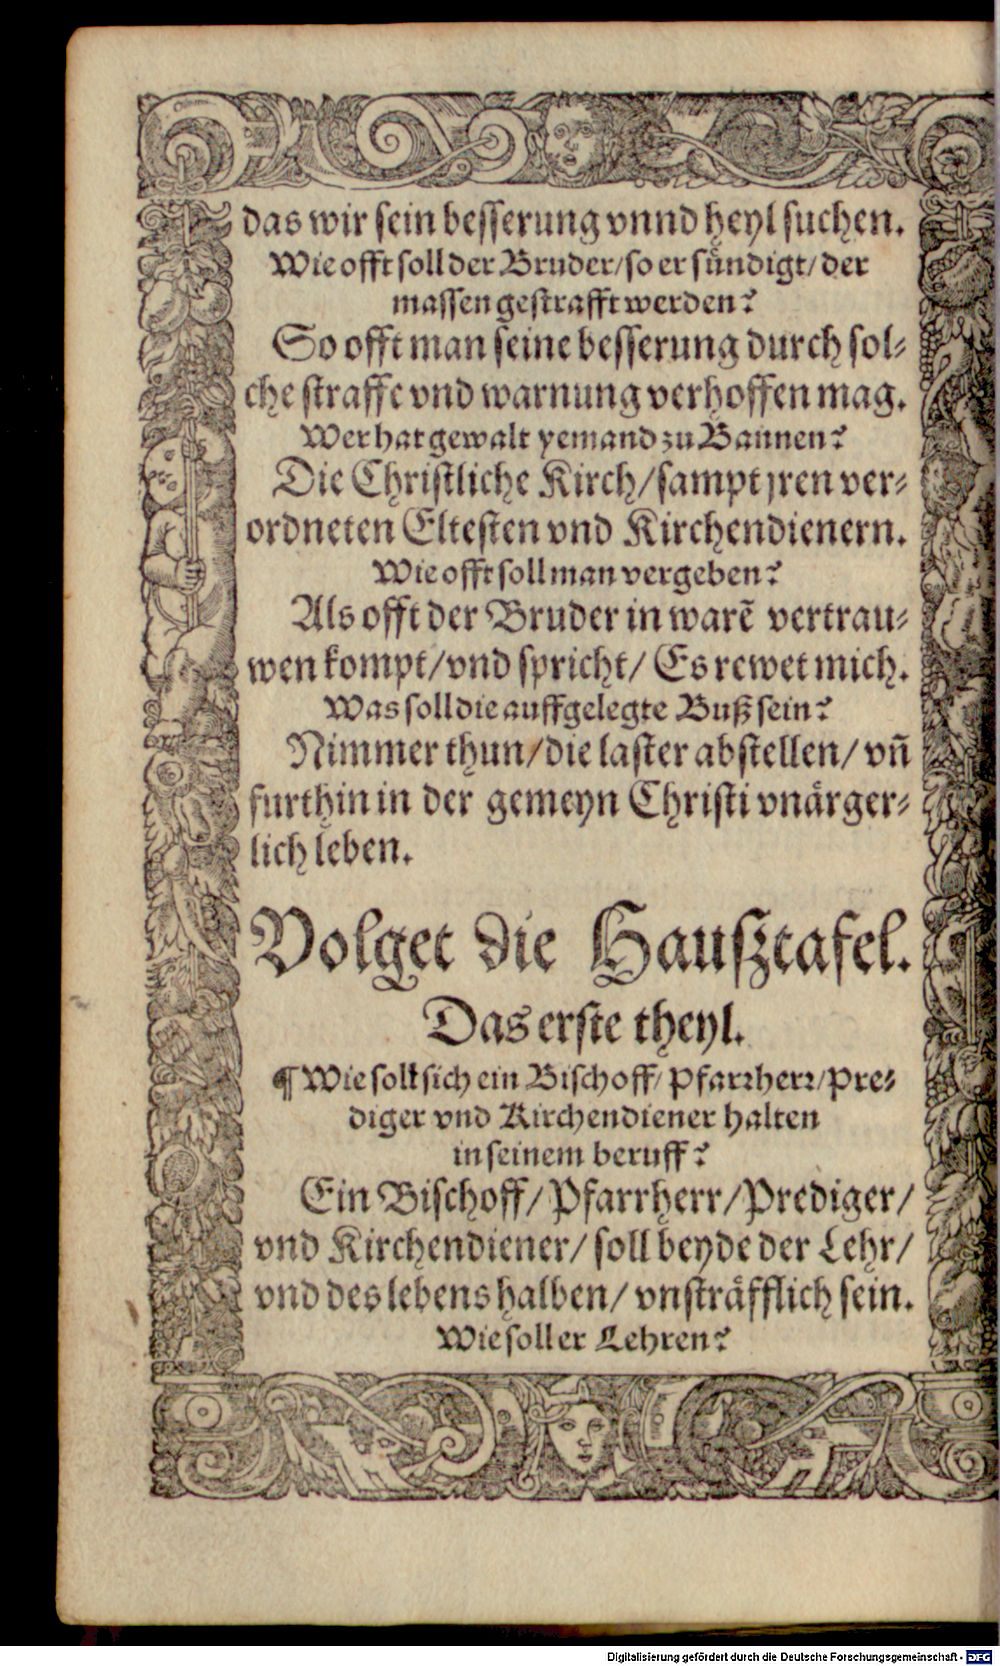 das wir sein besserung vnnd heyl suchen.
Wie offt soll der Bruder/ so er sündigt/ der
massen gestrafft werden?
So offt man seine besserung durch sol-
che straffe vnd warnung verhoffen mag.
Wer hat gewalt yemand zu Bannen?
Die Christliche Kirch/ sampt jren ver-
ordneten Eltesten vnd Kirchendienern.
Wie offt soll man vergeben?
Als offt der Bruder in warẽ vertrau-
wen kompt/ vnd spricht/ Es rewet mich.
Was soll die auffgelegte Buß sein?
Nimmer thun/ die laster abstellen/ vñ
furthin in der gemeyn Christi vnärger-
lich leben.
Volget die Hausztafel.
Das erste theyl.
¶ Wie soll sich ein Bischoff/ Pfarrherr/ Pre-
diger vnd Kirchendiener halten
in seinem beruff?
Ein Bischoff/ Pfarrherr/ Prediger/
vnd Kirchendiener/ soll beyde der Lehr/
vnd des lebens halben/ vnsträfflich sein.
Wie soll er Lehren?
Digitalisierung gefördert durch die Deutsche Forschungsgemeinschaft - DFG